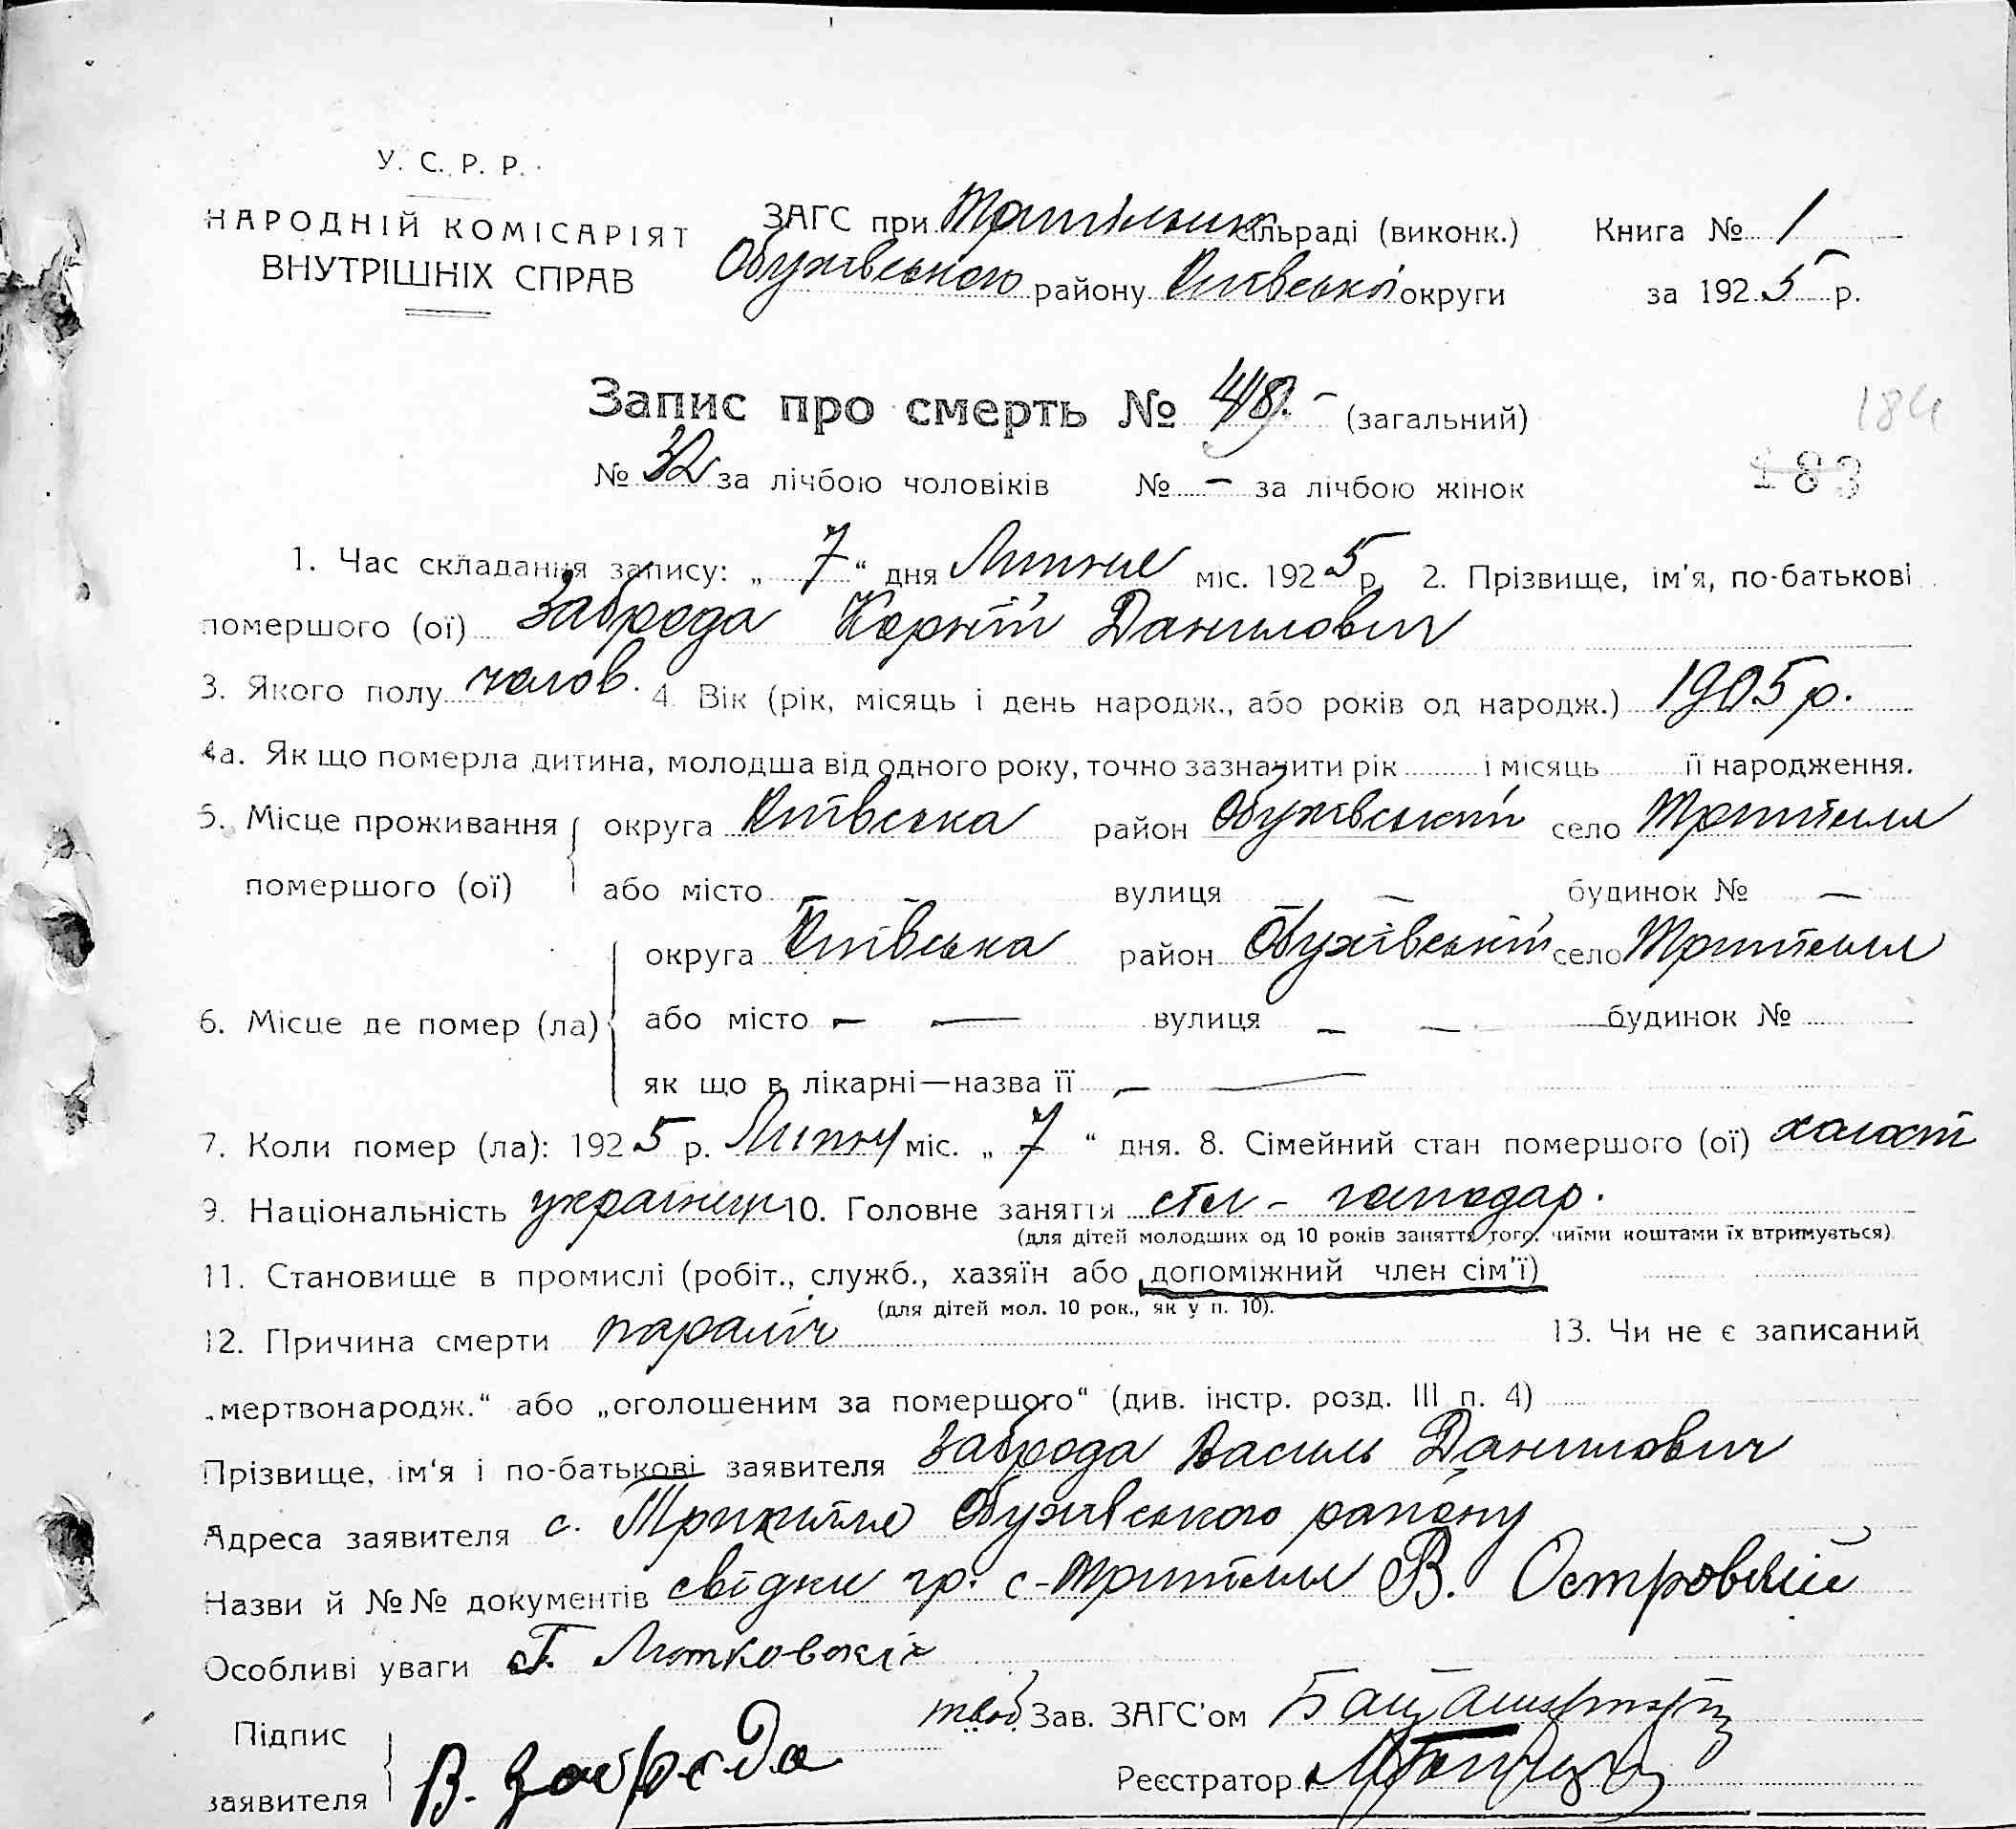 У. С. Р. Р.
НАРОДНІЙ КОМІСАРІЯТ
ВНУТРІШНІХ СПРАВ
ЗАГС при сільраді (виконк.) Книга № 1
Обухівського району Київської округи за 1925 р.
Запис про смерть № (загальний)
184
№ 32 за лічбою чоловіків № – за лічбою жінок
183
1. Час складання запису: „ 7 “ дня Липня міс. 1925 р. 2. Прізвище, ім'я, по-батькові
помершого (ої) Заброда Корній Данилович
3. Якого полу чолов. 4. Вік (рік, місяць і день народж., або років од народж.) 1905 р.
4а. Як що померла дитина, молодша від одного року, точно зазначити рік і місяць її народження.
5. Місце проживання округа Київська район Обухівський село Трипілля
помершого (ої) або місто вулиця — будинок № —
округа Київська район Обухівський село Трипілля
6. Місце де помер (ла) або місто — — вулиця – – будинок №
як що в лікарні—назва її – —
7. Коли помер (ла): 1925 р. Липня міс. „ 7 “ дня. 8. Сімейний стан помершого (ої) холост
9. Національність українец 10. Головне заняття сіл – господар.
(для дітей молодших од 10 років заняття того, чиїми коштами їх втримується)
11. Становище в промислі (робіт., служб., хазяїн або допоміжний член сім'ї)
(для дітей мол. 10 рок., як у п. 10).
12. Причина смерти параліч 13. Чи не є записаний
„мертвонародж.“ або „оголошеним за помершого“ (див. інстр. розд. III п. 4)
Прізвище, ім'я і по-батькові заявителя Заброда Василь Данилович
Адреса заявителя с. Трипілля Обухівського району
Назви й №№ документів свідки гр. с-Трипілля В. Островській
Особливі уваги Г.
Підпис Зав. ЗАГС'ом
заявителя В. Заброда Реєстратор